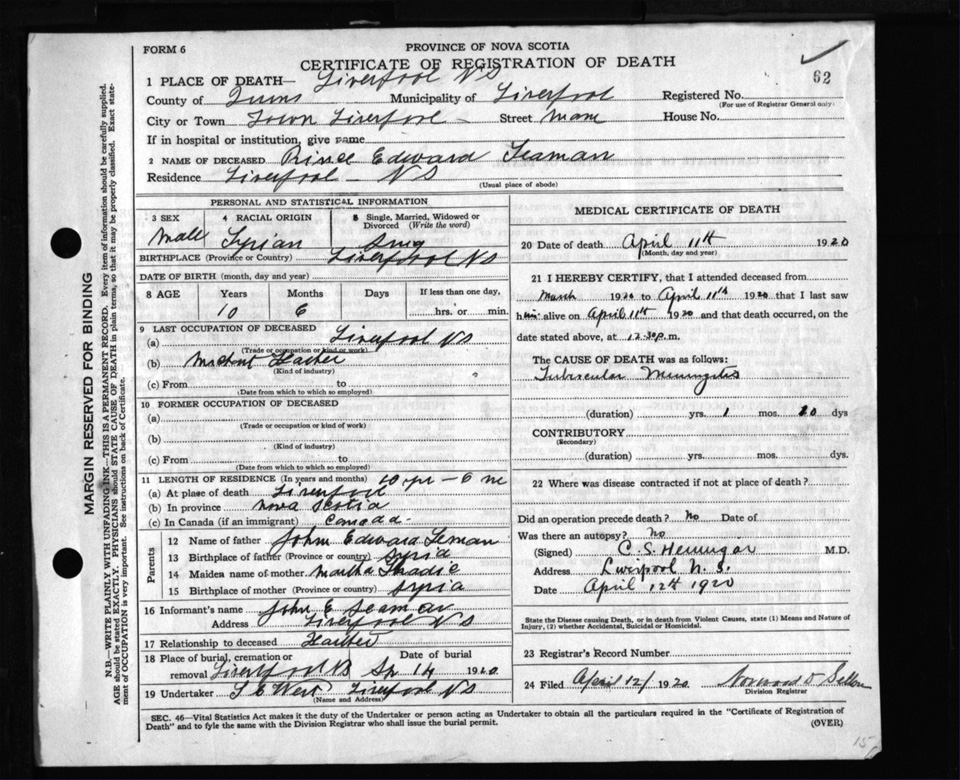 FORM 6
PROVINCE OF NOVA SCOTIA
CERTIFICATE OF REGISTRATION OF DEATH
62
1 PLACE OF DEATH— Liverpool NS
County of Queens Municipality of Liverpool Registered No.
(For use of Registrar General only)
City or Town Town Liverpool — Street Main House No.
If in hospital or institution, give name
2 NAME OF DECEASED Prince Edward Seaman
Residence Liverpool — NS
(Usual place of abode)
PERSONAL AND STATISTICAL INFORMATION
3 SEX 4 RACIAL ORIGIN 5 Single, Married, Widowed or Divorced (Write the word)
Male Syrian Sing
BIRTHPLACE (Province or Country) Liverpool NS
DATE OF BIRTH (month, day and year)
8 AGE Years Months Days If less than one day,
10 6 hrs. or min.
9 LAST OCCUPATION OF DECEASED
(a) Liverpool NS
(Trade or occupation or kind of work)
(b)
(Kind of industry)
(c) From to
(Date from which to which so employed)
10 FORMER OCCUPATION OF DECEASED
(a)
(Trade or occupation or kind of work)
(b)
(Kind of industry)
(c) From to
(Date from which to which so employed)
11 LENGTH OF RESIDENCE (In years and months) 10 yr — 6 mo
(a) At place of death Liverpool
(b) In province Nova Scotia
(c) In Canada (if an immigrant) Canada
Parents
12 Name of father John Edward Seman
13 Birthplace of father (Province or country) Syria
14 Maiden name of mother Martha
15 Birthplace of mother (Province or country) Syria
16 Informant's name John E Seaman
Address Liverpool NS
17 Relationship to deceased Father
18 Place of burial, cremation or removal Liverpool NS Date of burial Ap 14 1920
19 Undertaker West Liverpool NS
(Name and Address)
MEDICAL CERTIFICATE OF DEATH
20 Date of death April 11th 1920
(Month, day and year)
21 I HEREBY CERTIFY, that I attended deceased from
March 1920 to April 11th 1920 that I last saw
him alive on April 11th 1920 and that death occurred, on the
date stated above, at 12.30 p.m.
The CAUSE OF DEATH was as follows:
Tubercular Meningitis
(duration) yrs. 1 mos. 10 dys
CONTRIBUTORY
(Secondary)
(duration) yrs. mos. dys.
22 Where was disease contracted if not at place of death?
Did an operation precede death? No Date of
Was there an autopsy? No
(Signed) C. S. Hennigar M.D.
Address Liverpool N.S.
Date April 12th 1920
State the Disease causing Death, or in death from Violent Causes, state (1) Means and Nature of
Injury, (2) whether Accidental, Suicidal or Homicidal.
23 Registrar's Record Number
24 Filed April 12/ 1920
Division Registrar
SEC. 46—Vital Statistics Act makes it the duty of the Undertaker or person acting as Undertaker to obtain all the particulars required in the "Certificate of Registration of
Death" and to fyle the same with the Division Registrar who shall issue the burial permit.
(OVER)
MARGIN RESERVED FOR BINDING
N.B.—WRITE PLAINLY WITH UNFADING INK—THIS IS A PERMANENT RECORD. Every item of information should be carefully supplied.
AGE should be stated EXACTLY. PHYSICIANS should STATE CAUSE OF DEATH in plain terms, so that it may be properly classified. Exact state-
ment of OCCUPATION is very important. See instructions on back of Certificate.